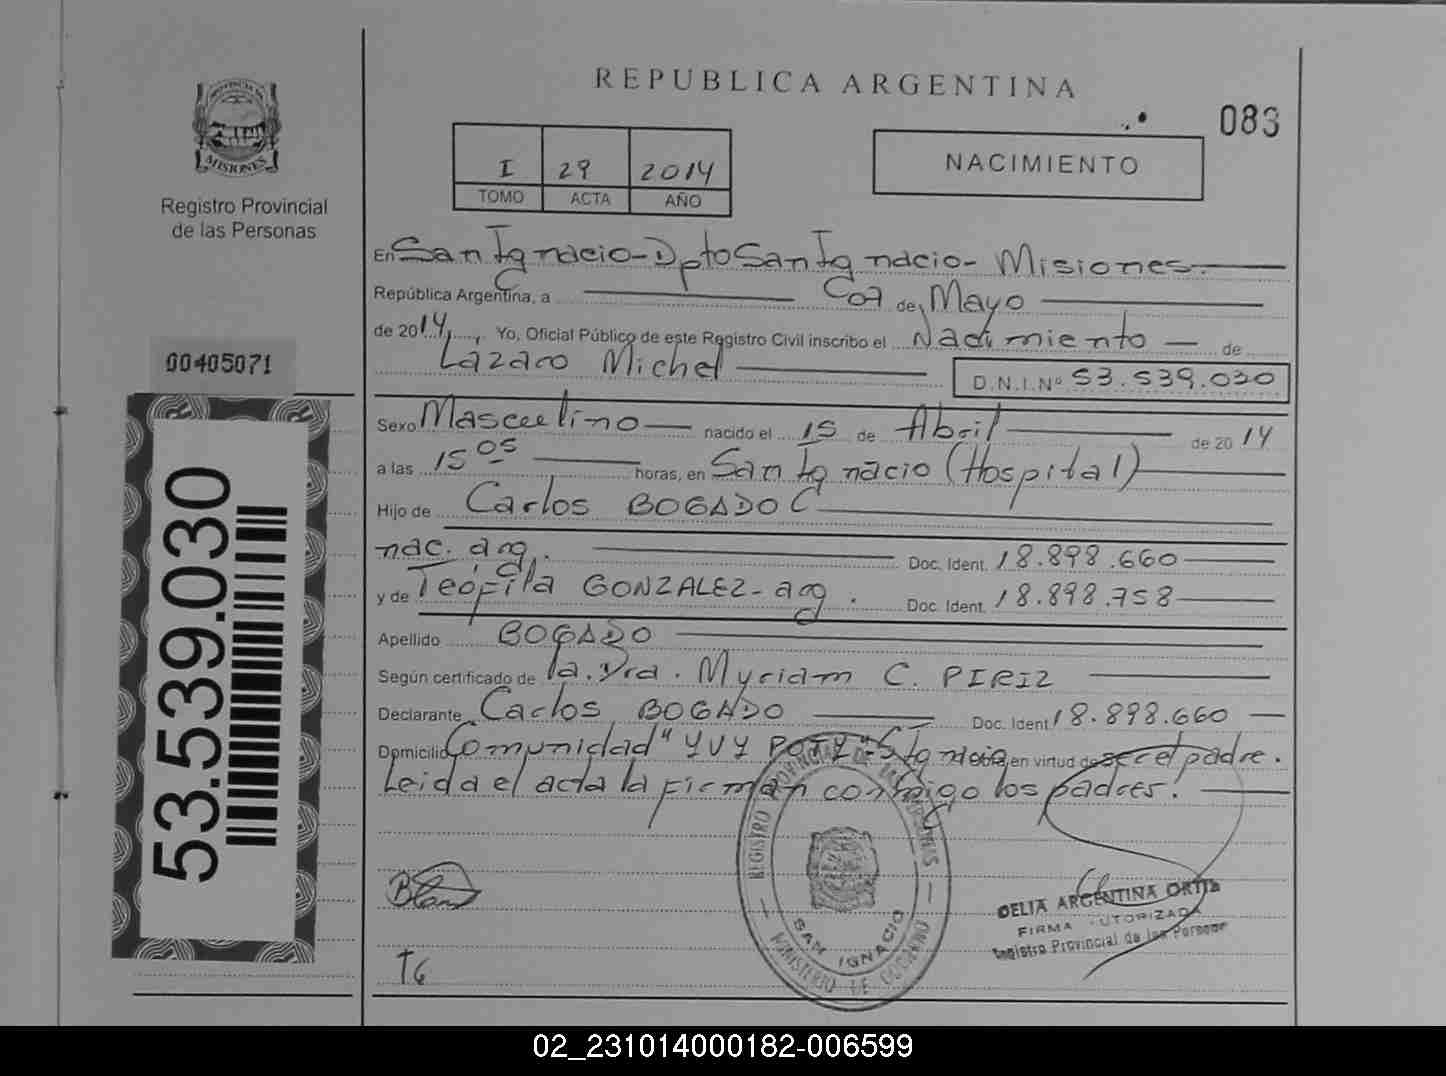 REPUBLICA ARGENTINA
083
I 29 2014
TOMO ACTA AÑO
NACIMIENTO
PROVINCIA DE
MISIONES
Registro Provincial
de las Personas
En San Ignacio - Dpto San Ignacio - Misiones.
República Argentina, a 07 de Mayo
de 2014, Yo, Oficial Público de este Registro Civil inscribo el Nacimiento de
Lazaro Michel
D.N.I.Nº 53.539.030
00405071
53.539.030
Sexo Masculino nacido el 15 de Abril de 2014
a las 15 05 horas, en San Ignacio (Hospital)
Hijo de Carlos BOGADO C
nac. arg. Doc. Ident. 18.898.660
y de Teófila GONZALEZ - arg. Doc. Ident. 18.898.758
Apellido BOGADO
Según certificado de la. Dra. Myriam C. PIRIZ
Declarante Carlos BOGADO Doc. Ident 18.898.660
Domicilio Comunidad "YVY POTY" en virtud de ser el padre.
Leida el acta la firman conmigo los padres.
REGISTRO PROVINCIAL DE LAS PERSONAS
SAN IGNACIO
MINISTERIO DE GOBIERNO
DELIA ARGENTINA ORTIZ
FIRMA AUTORIZADA
Registro Provincial de las Personas
TG
02_231014000182-006599